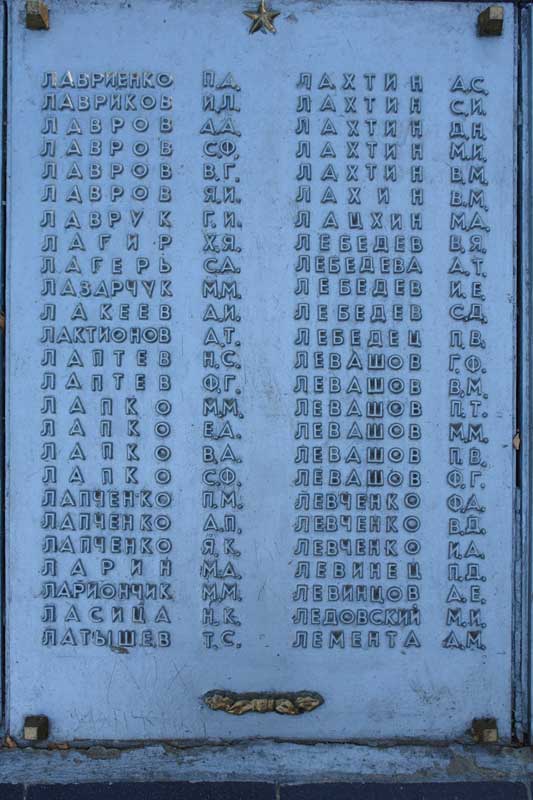 ЛАВРИЕНКО П.А.
ЛАВРИКОВ И.Л.
ЛАВРОВ А.А.
ЛАВРОВ С.Ф.
ЛАВРОВ В.Г.
ЛАВРОВ Я.И.
ЛАВРУК Г.И.
ЛАГИР Х.Я.
ЛАГЕРЬ С.А.
ЛАЗАРЧУК М.М.
ЛАКЕЕВ А.И.
ЛАКТИОНОВ А.Т.
ЛАПТЕВ Н.С.
ЛАПТЕВ Ф.Г.
ЛАПКО М.М.
ЛАПКО Е.А.
ЛАПКО В.А.
ЛАПКО С.Ф.
ЛАПЧЕНКО П.М.
ЛАПЧЕНКО А.П.
ЛАПЧЕНКО Я.К.
ЛАРИН М.А.
ЛАРИОНЧИК М.М.
ЛАСИЦА Н.К.
ЛАТЫШЕВ Т.С.
ЛАХТИН А.С.
ЛАХТИН С.И.
ЛАХТИН Д.Н.
ЛАХТИН М.И.
ЛАХТИН В.М.
ЛАХИН В.М.
ЛАЦХИН М.А.
ЛЕБЕДЕВ В.Я.
ЛЕБЕДЕВА А.Т.
ЛЕБЕДЕВ И.Е.
ЛЕБЕДЕВ С.Д.
ЛЕБЕДЕЦ П.В.
ЛЕВАШОВ Г.Ф.
ЛЕВАШОВ В.М.
ЛЕВАШОВ П.Т.
ЛЕВАШОВ М.М.
ЛЕВАШОВ П.В.
ЛЕВАШОВ Ф.Г.
ЛЕВЧЕНКО Ф.А.
ЛЕВЧЕНКО В.Д.
ЛЕВЧЕНКО И.А.
ЛЕВИНЕЦ П.Д.
ЛЕВИНЦОВ А.Е.
ЛЕДОВСКИЙ М.И.
ЛЕМЕНТА А.М.